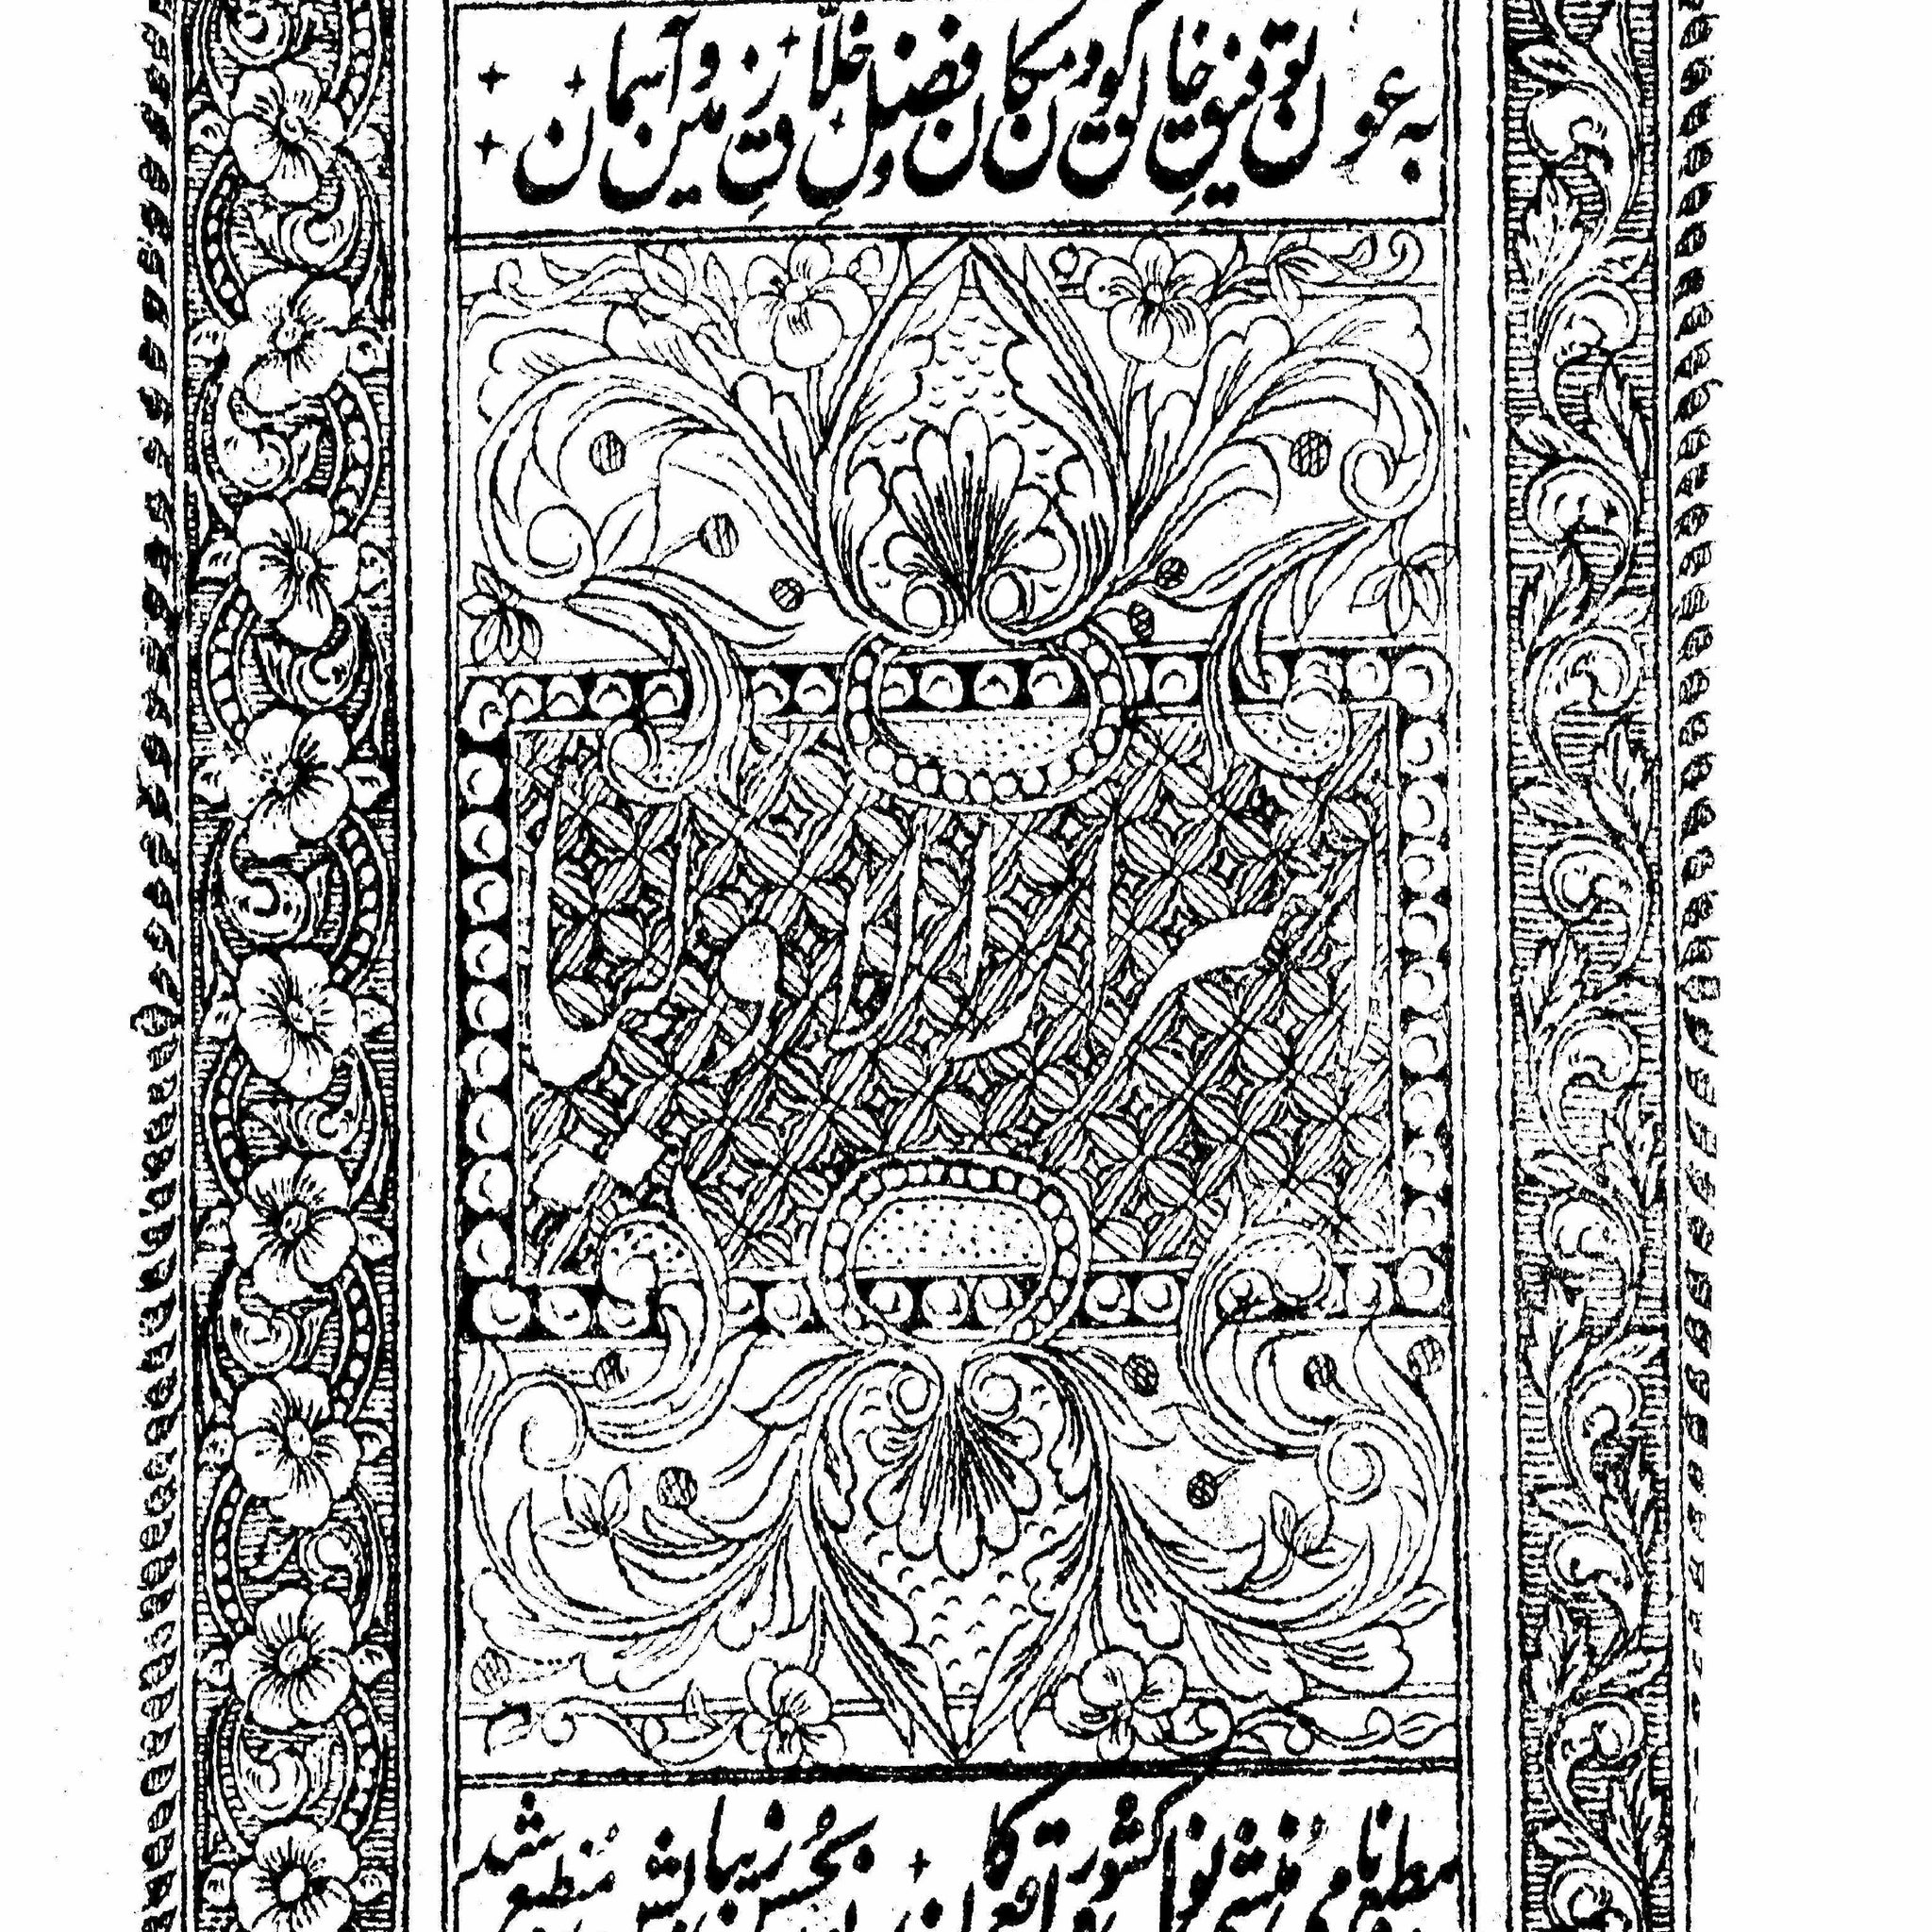 به عون توفیق خالق کون و مکان و فضل خلّاق زمین و آسمان
اسرار الاولیا
مطبع نامی منشی نولکشور + بحسن زیبایش منطبع شد